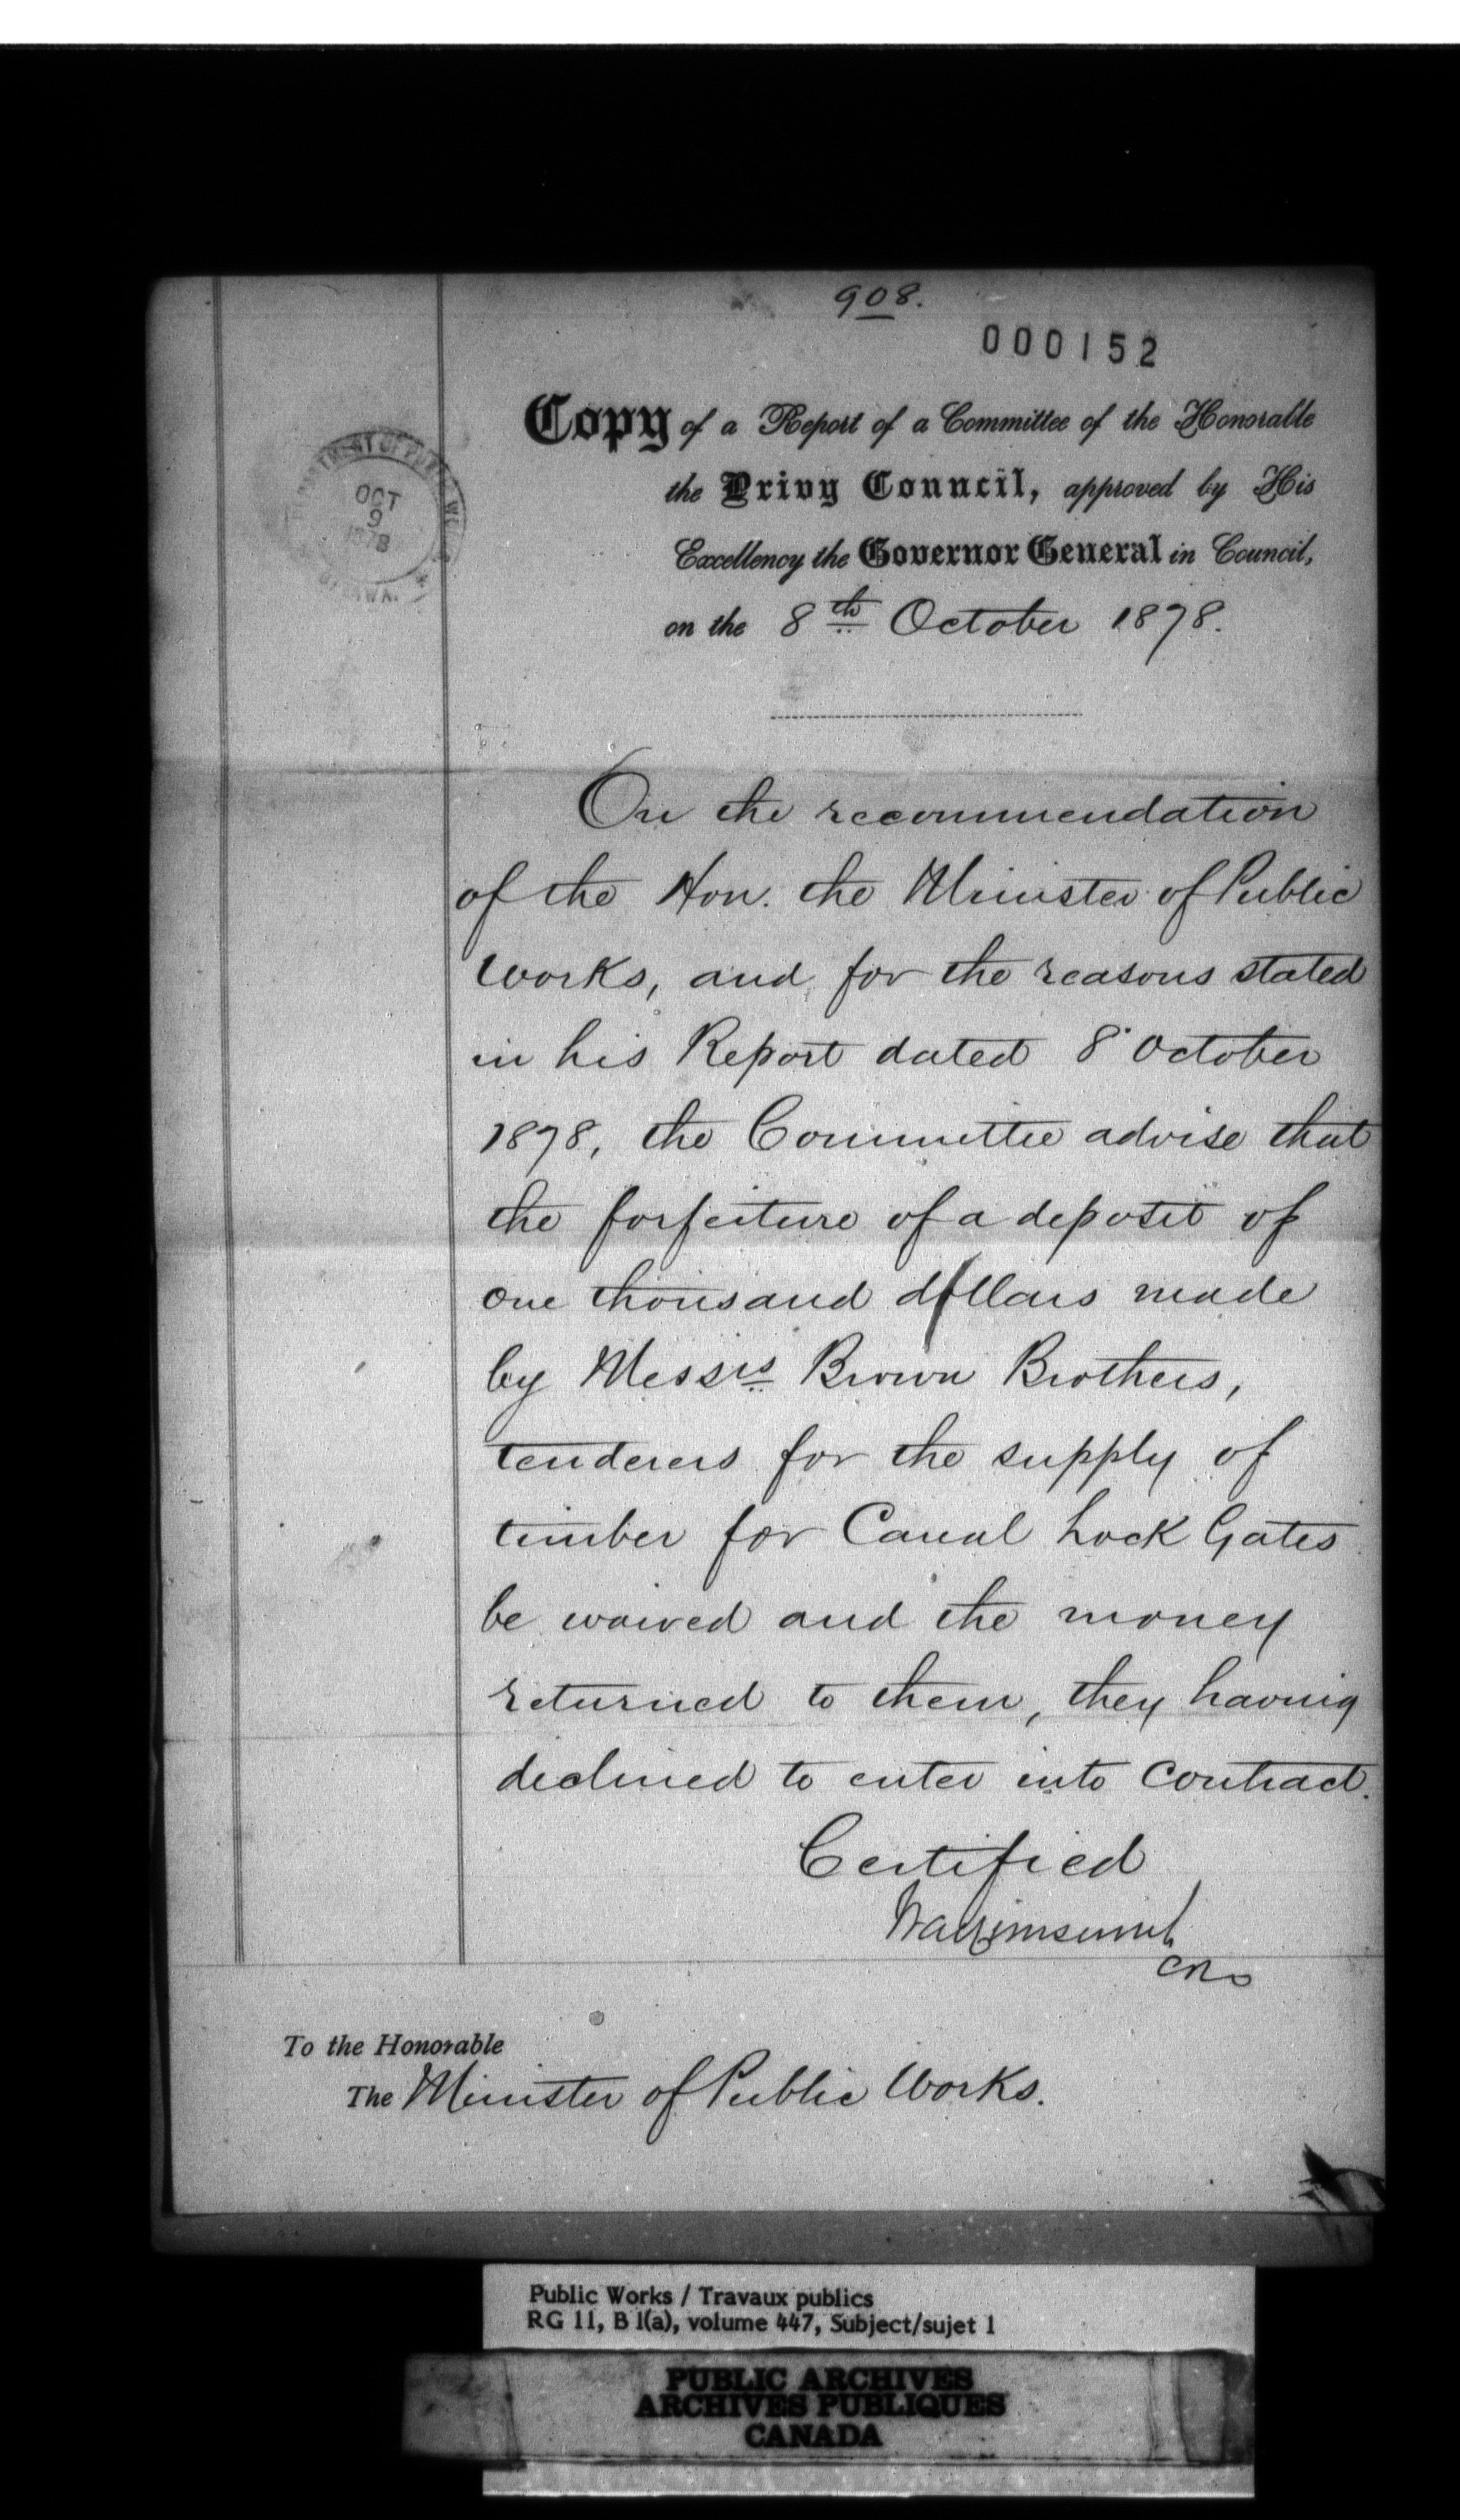 908.
000152
Copy of a Report of a Committee of the Honorable
the Privy Council, approved by His
Excellency the Governor General in Council,
on the 8th October 1878.
DEPARTMENT OF PUBLIC WORKS
OCT
9
1878
OTTAWA.
On the recommendation
of the Hon. the Minister of Public
Works, and for the reasons stated
in his Report dated 8' October
1878, the Committee advise that
the forfeiture of a deposit of
one thousand dollars made
by Messrs Brown Brothers,
tenderers for the supply of
timber for Canal Lock Gates
be waived and the money
returned to them, they having
declined to enter into contract.
Certified
To the Honorable
The Minister of Public Works.
Public Works / Travaux publics
RG 11, B 1(a), volume 447, Subject/sujet 1
PUBLIC ARCHIVES
ARCHIVES PUBLIQUES
CANADA